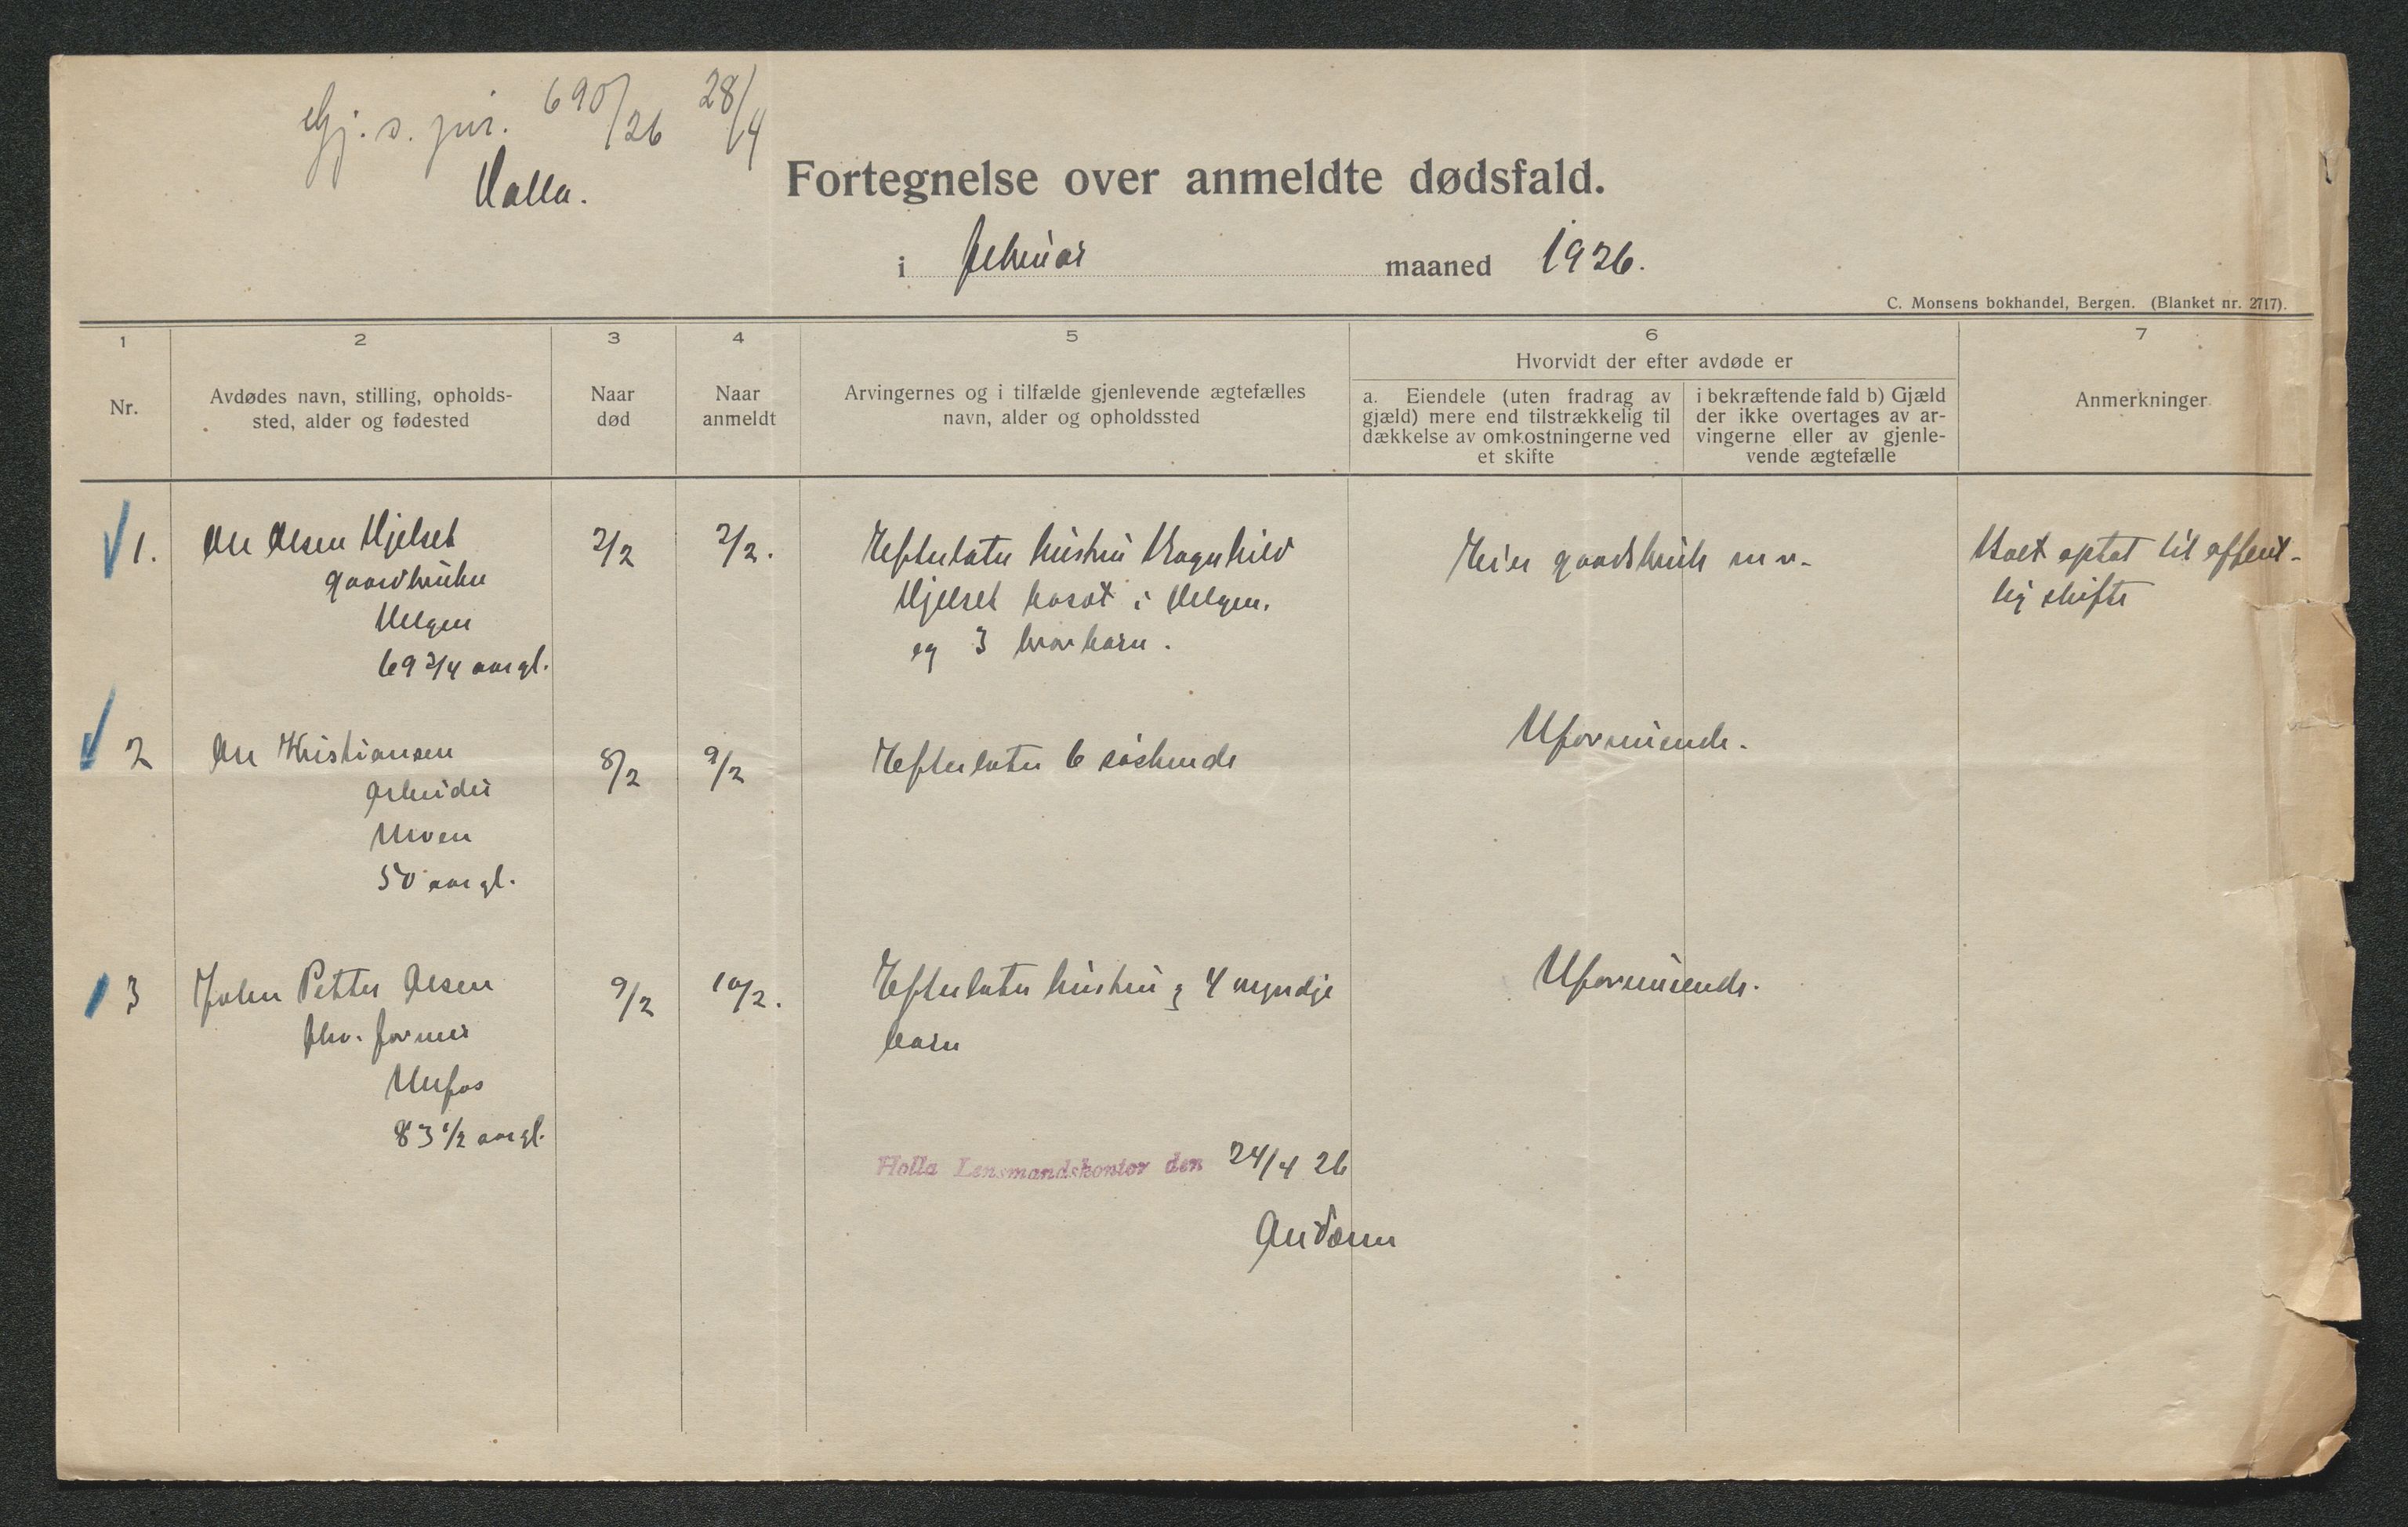 Gj. s. jnr. 690/26 28/4
Holla.
Fortegnelse over anmeldte dødsfald.
i februar maaned 1926.
C. Monsens bokhandel, Bergen. (Blanket nr. 2717).
1
2
3
4
5
6
7
Nr.
Avdødes navn, stilling, opholds-
sted, alder og fødested
Naar
død
Naar
anmeldt
Arvingernes og i tilfælde gjenlevende ægtefælles
navn, alder og opholdssted
Hvorvidt der efter avdøde er
a. Eiendele (uten fradrag av
gjæld) mere end tilstrækkelig til
dækkelse av omkostningerne ved
et skifte
i bekræftende fald b) Gjæld
der ikke overtages av ar-
vingerne eller av gjenle-
vende ægtefælle
Anmerkninger
1. Ole Olsen Hjelset 2/2 2/2. Efterlater hustru Ragnhild Eier gaardsbruk m v. Boet optat til offent-
gaardbruker Hjelset bosat i Helgen. lig skifte
Helgen og 3 barn.
69 3/4 aar gl.
2 Ole Kristiansen 8/2 9/2 Efterlater 6 søskende Uformuende.
Arbeider
Ulven
50 aar gl.
3 John Petter Olsen 9/2 10/2. Efterlater hustru og 4 myndje Uformuende.
fhv. former barn
Ulefos
83 1/2 aar gl.
Holla Lensmandskontor den 24/4 26